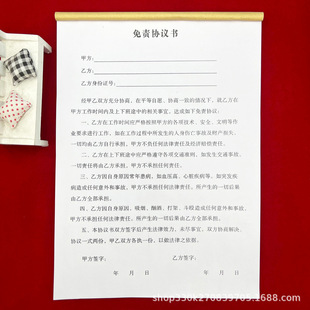 免责协议书
甲方：
乙方：
乙方身份证号：
经甲乙双方充分协商，在平等自愿、协商一致的情况下，就乙方在
甲方工作时间内及上下班途中的相关事宜，达成如下免责协议：
一、乙方在工作时间应严格按照甲方的各项技术、安全、文明等作
业要求进行工作，如在工作过程中所发生的人身伤亡事故及财产损失，
一切均由乙方自行承担，甲方不负任何法律责任及经济赔偿责任。
二、乙方在上下班途中应严格遵守各项交通规则，如发生交通事故，
一切责任将由乙方承担，甲方不承担任何责任。
三、乙方因自身原因常年患病，如血压高、心脏疾病等，如突发疾
病造成任何意外和事故，甲方不承担任何法律责任，所产生的一切后果
由乙方全部承担。
四、乙方因自身原因，吸烟、酗酒、打架、斗殴造成任何意外和事故，
甲方不承担任何法律责任。所产生的一切后果由乙方全部承担。
五、本协议书双方签字后产生法律效力。未尽事宜，双方协商解决。
协议一式两份，甲乙双方各执一份，以做法律之依据。
甲方签字： 乙方签字：
年 月 日 年 月 日
shop550k270859705.1688.com